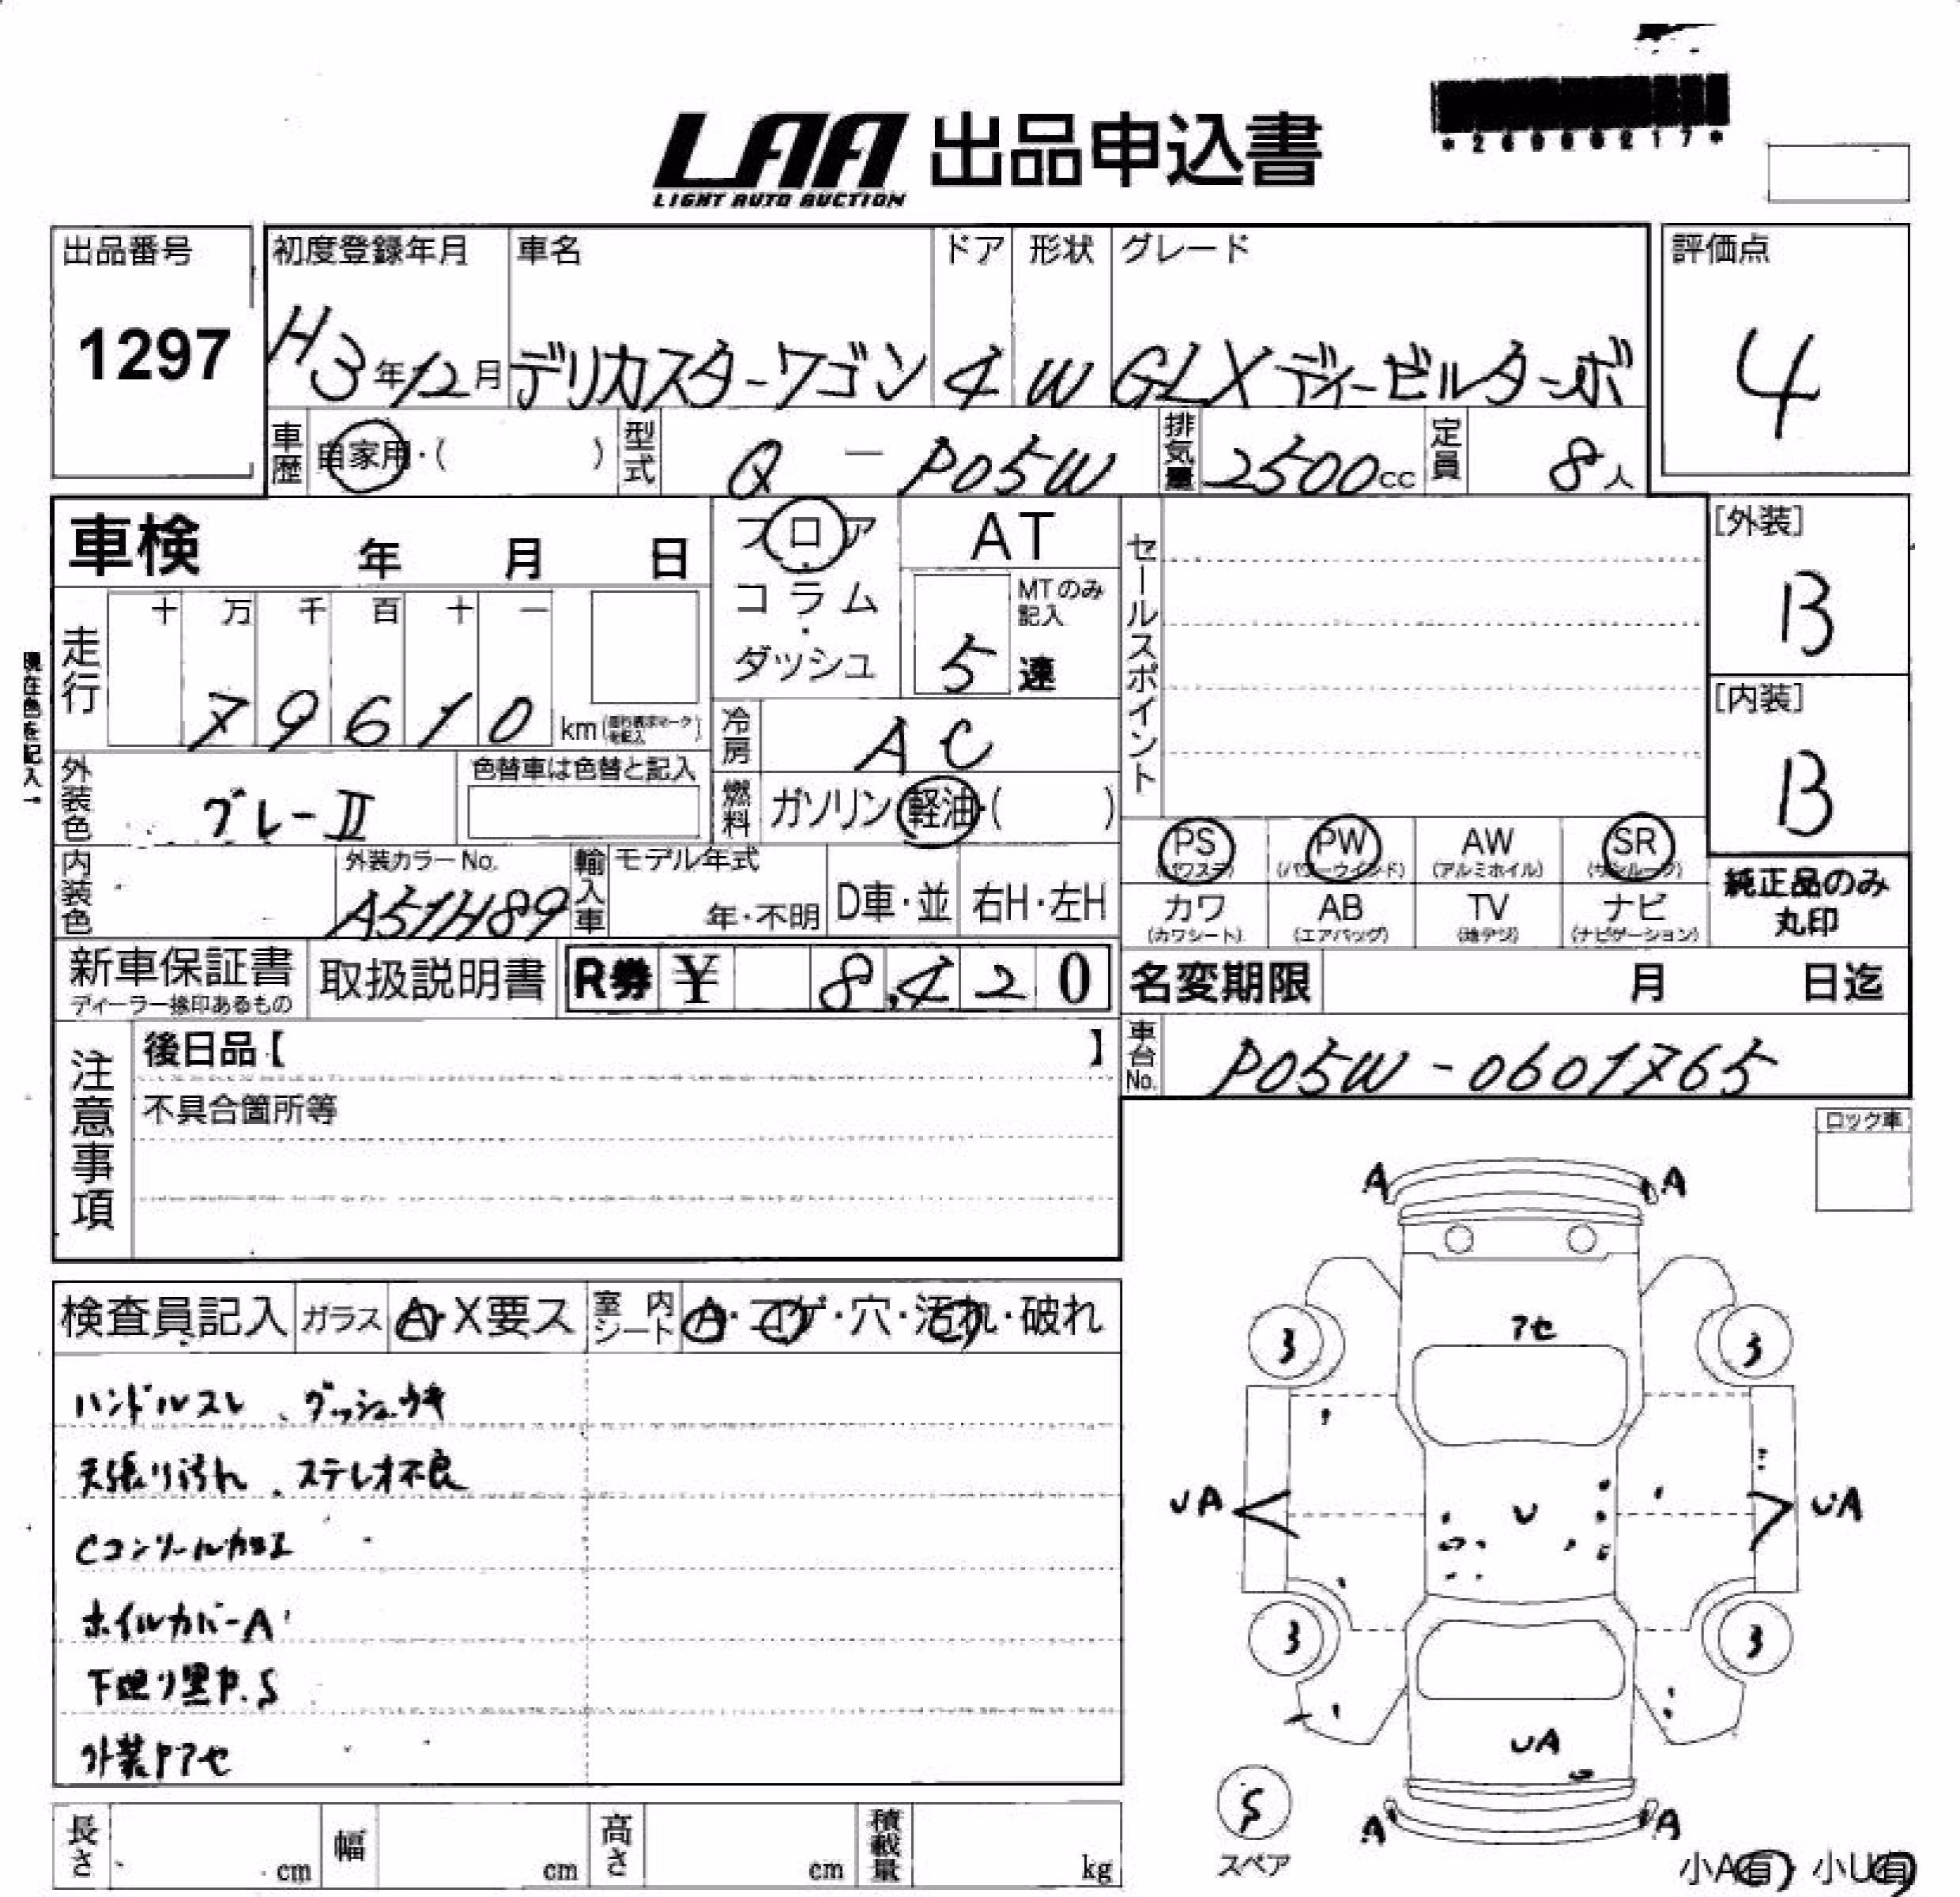 LAA 出品申込書
LIGHT AUTO AUCTION
*26006217*
出品番号 初度登録年月 車名 ドア 形状 グレード 評価点
1297 H3年12月 デリカスターワゴン 4 W GLXディーゼルターボ 4
車歴 自家用・( ) 型式 Q-P05W 排気量 2500cc 定員 8人
車検 年 月 日
フロア・コラム・ダッシュ
AT
MTのみ記入
5速
セールスポイント
[外装]
B
現在色を記入→
走行 十 万 千 百 十 一
79610 km
[内装]
B
冷房 AC
外装色 グレーII 色替車は色替と記入
燃料 ガソリン・軽油・( )
PS (パワステ) PW (パワーウインド) AW (アルミホイル) SR (サンルーフ)
カワ (カワシート) AB (エアバッグ) TV (地デジ) ナビ (ナビゲーション)
純正品のみ丸印
内装色 外装カラーNo. A51H89 輸入車 モデル年式 年・不明 D車・並 右H・左H
新車保証書 取扱説明書 R券 ¥ 8,420
ディーラー捺印あるもの
名変期限 月 日迄
車台No. P05W-0601765
注意事項
後日品【 】
不具合箇所等
ロック車
検査員記入 ガラス A・X要ス 室内シート A・コゲ・穴・汚れ・破れ
ハンドルスレ、ダッシュウキ
天張り汚れ、ステレオ不良
Cコンソール加工
ホイルカバーA
下廻り黒P.S
外装PアセA A
アセ
3 3
UA U UA
3 3
UA
S
スペア
A A
小A有 小U有
長さ cm 幅 cm 高さ cm 積載量 kg